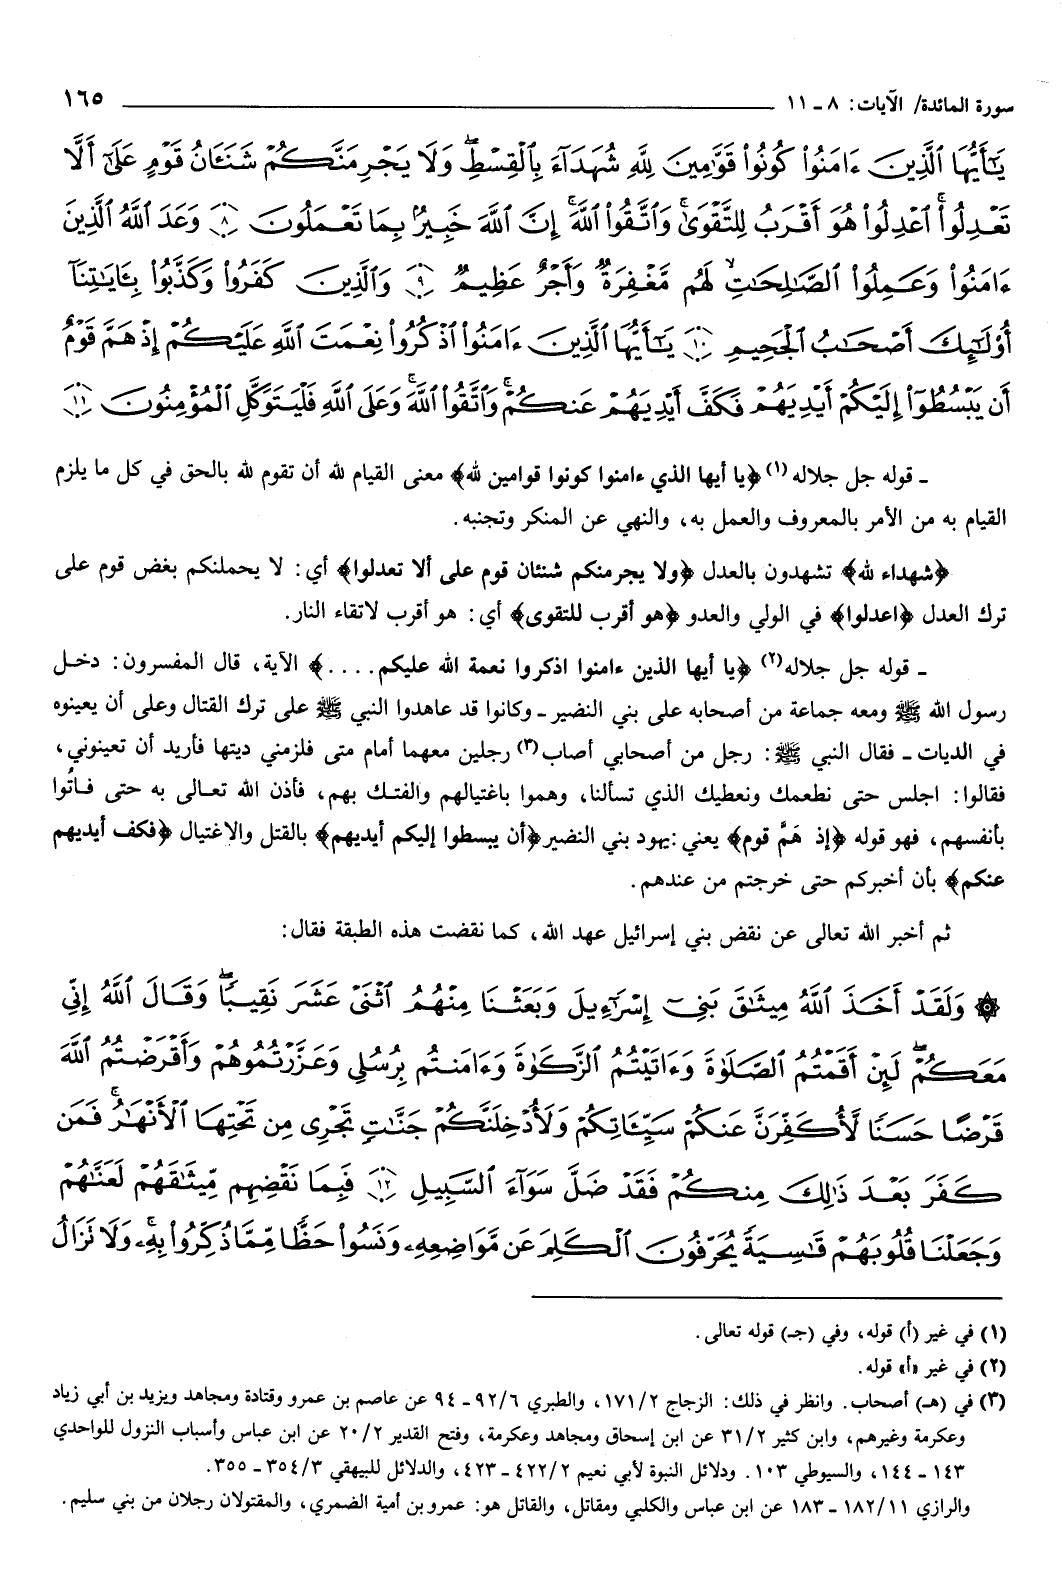 سورة المائدة/ الآيات: ٨ ـ ١١ ١٦٥
يَٰٓأَيُّهَا ٱلَّذِينَ ءَامَنُوا۟ كُونُوا۟ قَوَّٰمِينَ لِلَّهِ شُهَدَآءَ بِٱلْقِسْطِ ۖ وَلَا يَجْرِمَنَّكُمْ شَنَـَٔانُ قَوْمٍ عَلَىٰٓ أَلَّا
تَعْدِلُوا۟ ۚ ٱعْدِلُوا۟ هُوَ أَقْرَبُ لِلتَّقْوَىٰ ۖ وَٱتَّقُوا۟ ٱللَّهَ ۚ إِنَّ ٱللَّهَ خَبِيرٌۢ بِمَا تَعْمَلُونَ ٨ وَعَدَ ٱللَّهُ ٱلَّذِينَ
ءَامَنُوا۟ وَعَمِلُوا۟ ٱلصَّٰلِحَٰتِ ۙ لَهُم مَّغْفِرَةٌ وَأَجْرٌ عَظِيمٌ ٩ وَٱلَّذِينَ كَفَرُوا۟ وَكَذَّبُوا۟ بِـَٔايَٰتِنَآ
أُو۟لَٰٓئِكَ أَصْحَٰبُ ٱلْجَحِيمِ ١٠ يَٰٓأَيُّهَا ٱلَّذِينَ ءَامَنُوا۟ ٱذْكُرُوا۟ نِعْمَتَ ٱللَّهِ عَلَيْكُمْ إِذْ هَمَّ قَوْمٌ
أَن يَبْسُطُوٓا۟ إِلَيْكُمْ أَيْدِيَهُمْ فَكَفَّ أَيْدِيَهُمْ عَنكُمْ ۖ وَٱتَّقُوا۟ ٱللَّهَ ۚ وَعَلَى ٱللَّهِ فَلْيَتَوَكَّلِ ٱلْمُؤْمِنُونَ ١١
ـ قوله جل جلاله(١) ﴿يا أيها الذي ءامنوا كونوا قوامين لله﴾ معنى القيام لله أن تقوم لله بالحق في كل ما يلزم
القيام به من الأمر بالمعروف والعمل به، والنهي عن المنكر وتجنبه.
﴿شهداء لله﴾ تشهدون بالعدل ﴿ولا يجرمنكم شنئان قوم على ألا تعدلوا﴾ أي: لا يحملنكم بغض قوم على
ترك العدل ﴿اعدلوا﴾ في الولي والعدو ﴿هو أقرب للتقوى﴾ أي: هو أقرب لاتقاء النار.
ـ قوله جل جلاله(٢) ﴿يا أيها الذين ءامنوا اذكروا نعمة الله عليكم....﴾ الآية، قال المفسرون: دخل
رسول الله ﷺ ومعه جماعة من أصحابه على بني النضير ـ وكانوا قد عاهدوا النبي ﷺ على ترك القتال وعلى أن يعينوه
في الديات ـ فقال النبي ﷺ: رجل من أصحابي أصاب(٣) رجلين معهما أمام متى فلزمني ديتها فأريد أن تعينوني،
فقالوا: اجلس حتى نطعمك ونعطيك الذي تسألنا، وهموا باغتيالهم والفتك بهم، فأذن الله تعالى به حتى فأتُوا
بأنفسهم، فهو قوله ﴿إذ هَمَّ قوم﴾ يعني: يهود بني النضير ﴿أن يبسطوا إليكم أيديهم﴾ بالقتل والاغتيال ﴿فكف أيديهم
عنكم﴾ بأن أخبركم حتى خرجتم من عندهم.
ثم أخبر الله تعالى عن نقض بني إسرائيل عهد الله، كما نقضت هذه الطبقة فقال:
۞ وَلَقَدْ أَخَذَ ٱللَّهُ مِيثَٰقَ بَنِىٓ إِسْرَٰٓءِيلَ وَبَعَثْنَا مِنْهُمُ ٱثْنَىْ عَشَرَ نَقِيبًا ۖ وَقَالَ ٱللَّهُ إِنِّى
مَعَكُمْ ۖ لَئِنْ أَقَمْتُمُ ٱلصَّلَوٰةَ وَءَاتَيْتُمُ ٱلزَّكَوٰةَ وَءَامَنتُم بِرُسُلِى وَعَزَّرْتُمُوهُمْ وَأَقْرَضْتُمُ ٱللَّهَ
قَرْضًا حَسَنًا لَّأُكَفِّرَنَّ عَنكُمْ سَيِّـَٔاتِكُمْ وَلَأُدْخِلَنَّكُمْ جَنَّٰتٍ تَجْرِى مِن تَحْتِهَا ٱلْأَنْهَٰرُ ۚ فَمَن
كَفَرَ بَعْدَ ذَٰلِكَ مِنكُمْ فَقَدْ ضَلَّ سَوَآءَ ٱلسَّبِيلِ ١٢ فَبِمَا نَقْضِهِم مِّيثَٰقَهُمْ لَعَنَّٰهُمْ
وَجَعَلْنَا قُلُوبَهُمْ قَٰسِيَةً ۖ يُحَرِّفُونَ ٱلْكَلِمَ عَن مَّوَاضِعِهِۦ ۙ وَنَسُوا۟ حَظًّا مِّمَّا ذُكِّرُوا۟ بِهِۦ ۚ وَلَا تَزَالُ
(١) في غير (أ) قوله، وفي (جـ) قوله تعالى.
(٢) في غير «أ» قوله.
(٣) في (هـ) أصحاب. وانظر في ذلك: الزجاج ١٧١/٢، والطبري ٩٢/٦ ـ ٩٤ عن عاصم بن عمرو وقتادة ومجاهد ويزيد بن أبي زياد
وعكرمة وغيرهم، وابن كثير ٣١/٢ عن ابن إسحاق ومجاهد وعكرمة، وفتح القدير ٢٠/٢ عن ابن عباس وأسباب النزول للواحدي
١٤٣ ـ ١٤٤، والسيوطي ١٠٣. ودلائل النبوة لأبي نعيم ٤٢٢/٢ ـ ٤٢٣، والدلائل للبيهقي ٣٥٤/٣ ـ ٣٥٥.
والرازي ١٨٢/١١ ـ ١٨٣ عن ابن عباس والكلبي ومقاتل، والقاتل هو: عمرو بن أمية الضمري، والمقتولان رجلان من بني سليم.